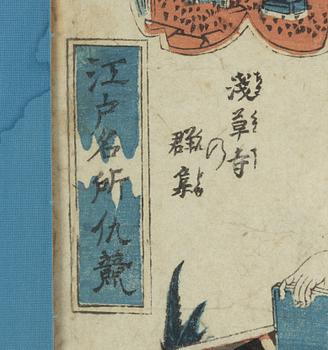 淺草寺の
群集
江戸名所仇競